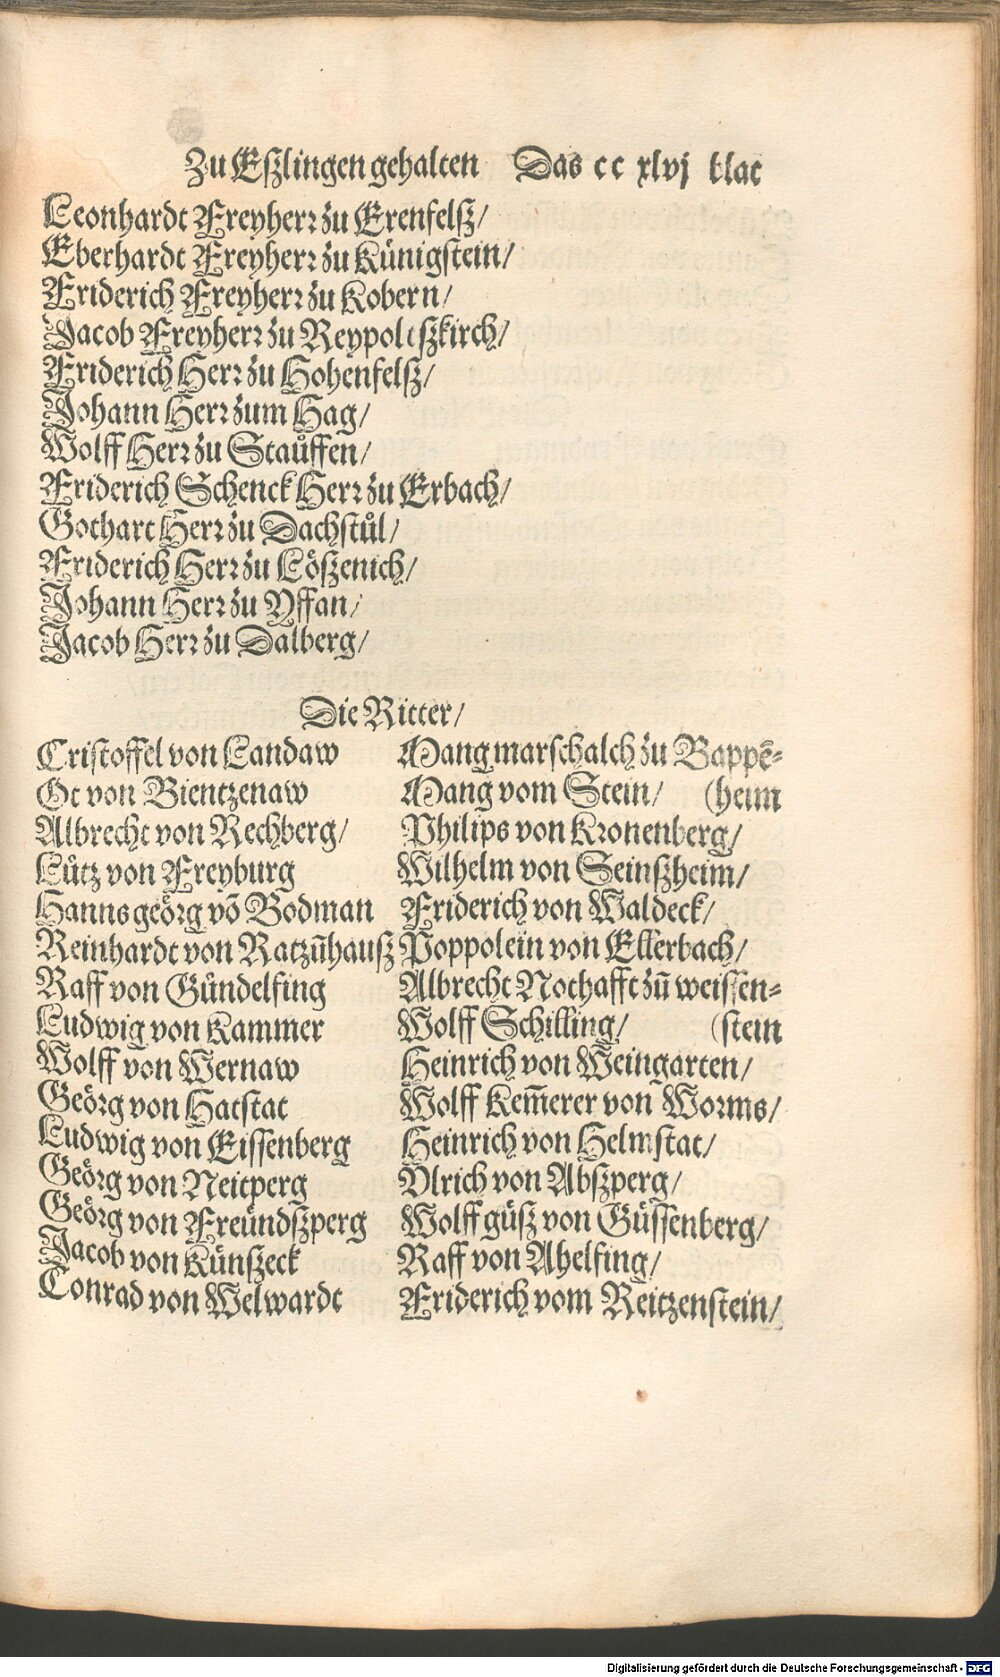 Zu Eszlingen gehalten Das cc xlvj blat
Leonhardt Freyherr zu Erenfelsz/
Eberhardt Freyherr zu Künigstein/
Friderich Freyherr zu Kobern/
Jacob Freyherr zu Reypoltszkirch/
Friderich Herr zu Hohenfelsz/
Johann Herr zum Hag/
Wolff Herr zu Stauffen/
Friderich Schenck Herr zu Erbach/
Gothart Herr zu Dachstůl/
Friderich Herr zu Löszenich/
Johann Herr zu Yffan/
Jacob Herr zu Dalberg/
Die Ritter/
Cristoffel von Landaw
Ot von Bientzenaw
Albrecht von Rechberg/
Lütz von Freyburg
Hanns geörg võ Bodman
Reinhardt von Ratzūhausz
Raff von Gündelfing
Ludwig von Kammer
Wolff von Wernaw
Geörg von Hatstat
Ludwig von Eissenberg
Geörg von Neitperg
Geörg von Freündszperg
Jacob von Künszeck
Conrad von Welwardt
Mang marschalch zu Bappē-
Mang vom Stein/ (heim
Philips von Kronenberg/
Wilhelm von Seinszheim/
Friderich von Waldeck/
Poppolein von Ellerbach/
Albrecht Nothafft zū weissen-
Wolff Schilling/ (stein
Heinrich von Weingarten/
Wolff Kem̄erer von Worms/
Heinrich von Helmstat/
Vlrich von Abszperg/
Wolff güsz von Güssenberg/
Raff von Ahelfing/
Friderich vom Reitzenstein/
Digitalisierung gefördert durch die Deutsche Forschungsgemeinschaft - DFG